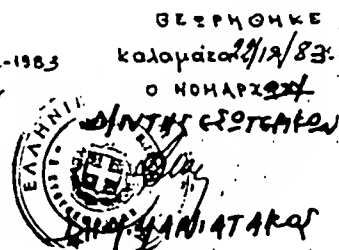 ΘΕΩΡΗΘΗΚΕ
-1983
Καλαμάτα 22/12/83
Ο ΝΟΜΑΡΧΗΣ
Δ/ΝΤΗΣ ΕΣΩΤΕΡΙΚΩΝ
ΕΛΛΗΝΙ
ΜΑΝΙΑΤΑΚΟΣ